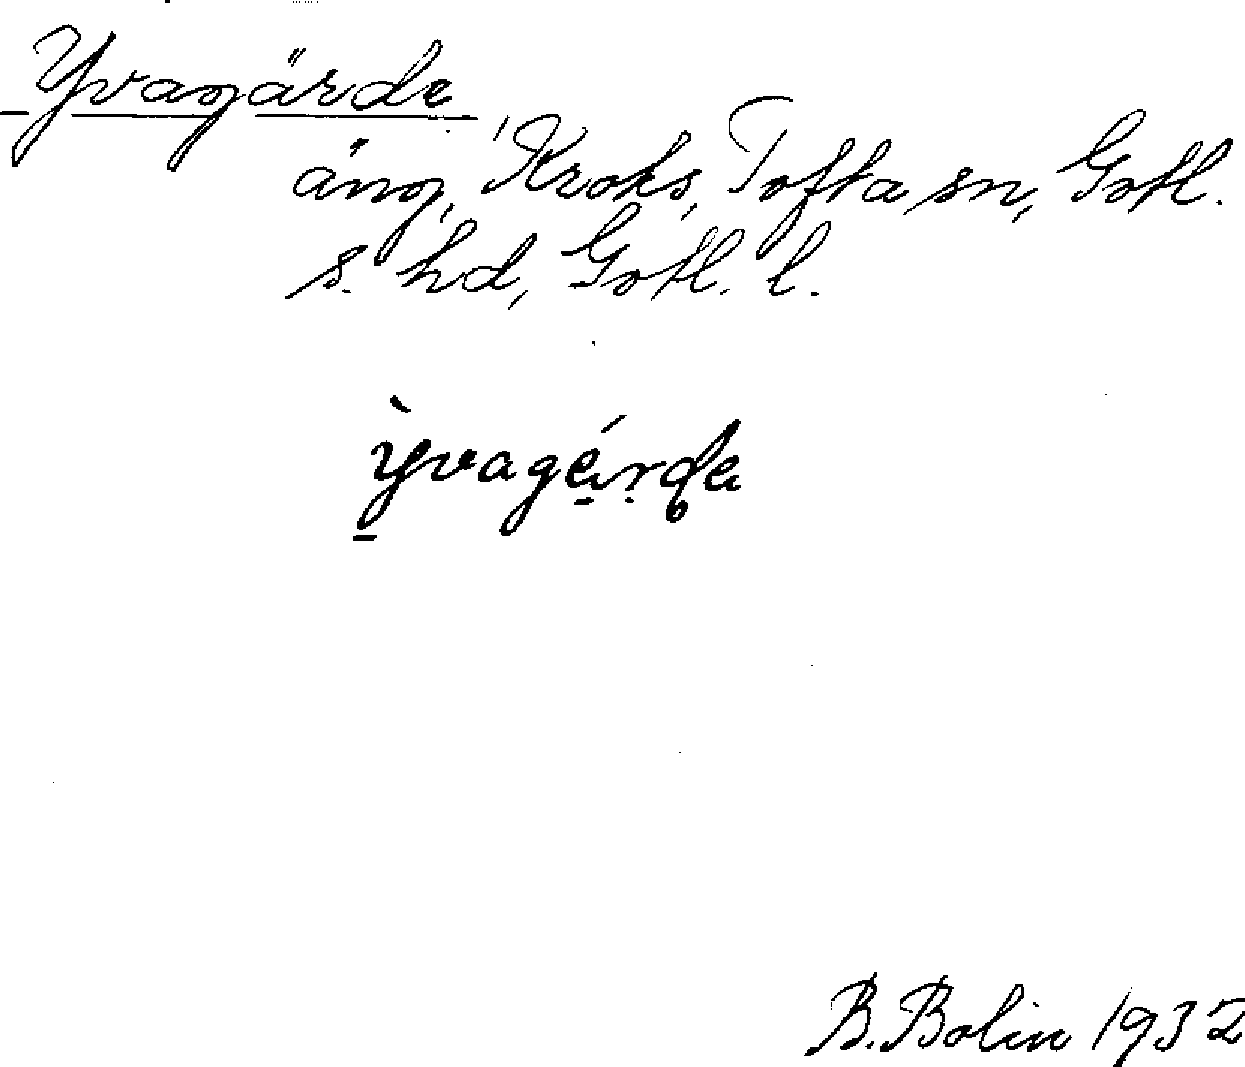 Yvagärde
äng, Kroks, Tofta sn, Gotl.
s. hd, Gotl. l.
B. Bolin 1932